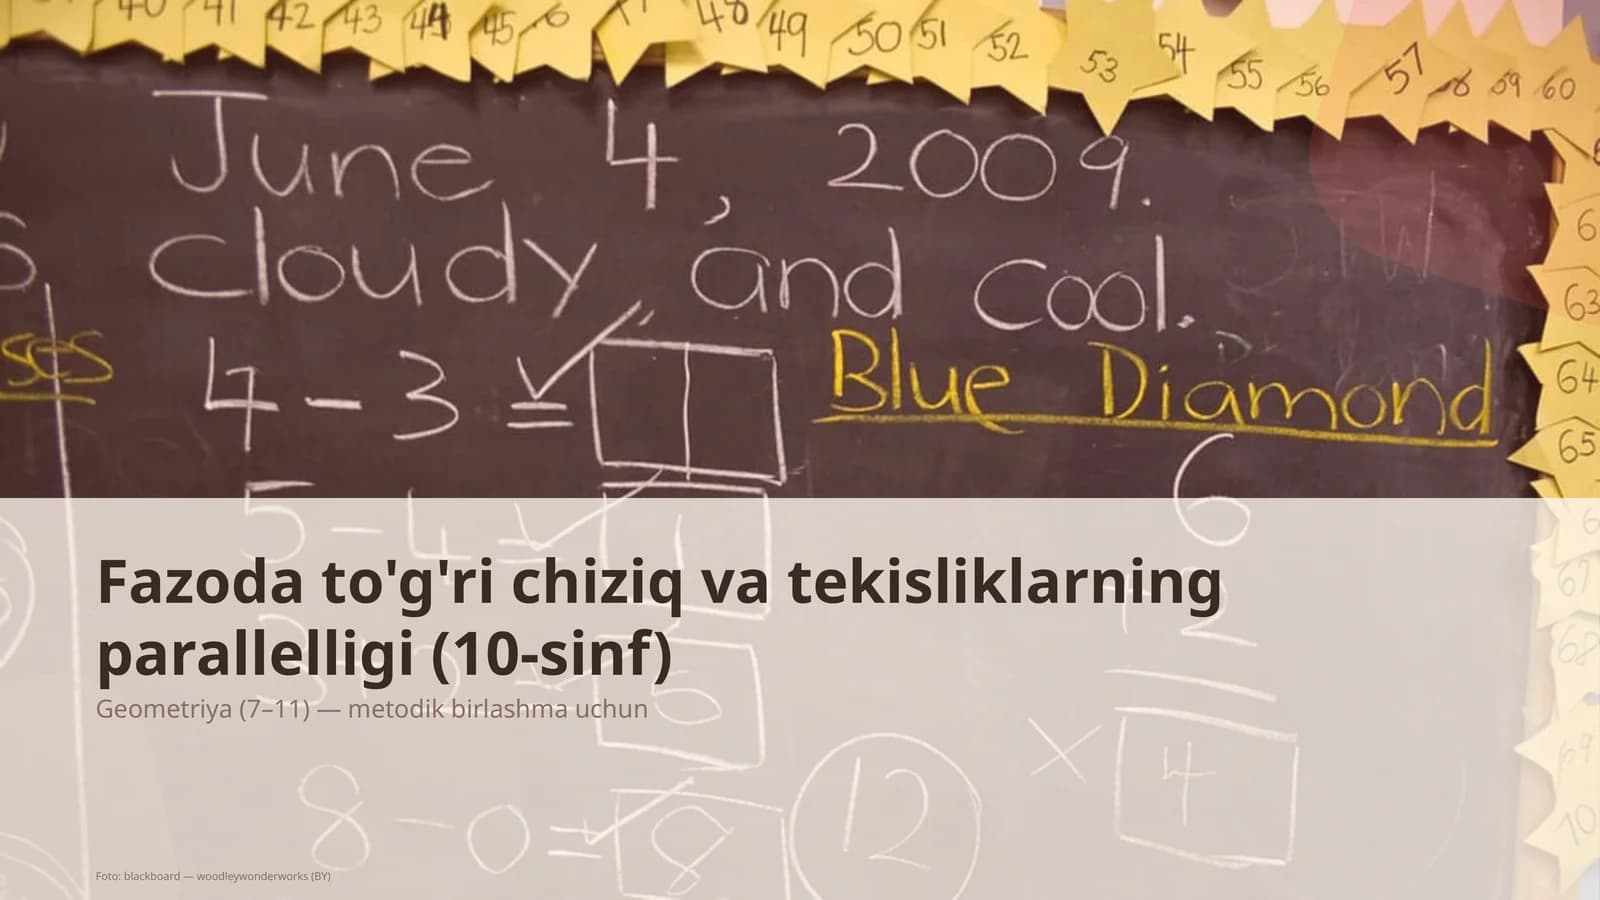 41 42 43 44 45 48 49 50 51 52 53 54 55 56 57 58 59 60
June 4, 2009.
Cloudy, and cool.
63
ses 4 - 3 = 1 Blue Diamond
64
65
5 - 4 = 1 6
67
Fazoda to'g'ri chiziq va tekisliklarning
parallelligi (10-sinf)
68
Geometriya (7–11) — metodik birlashma uchun
69
8 - 0 = 8 12 × 4
70
Foto: blackboard — woodleywonderworks (BY)